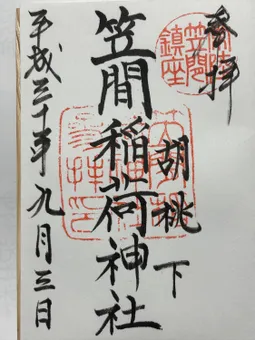 参拝
笠間
鎮座
胡桃下
笠間稲荷神社
平成三十年九月三日